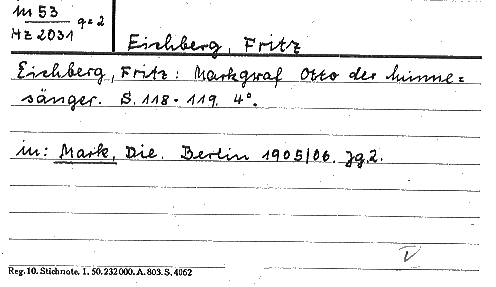 M 53 q=2
HZ 2031
Eichberg, Fritz
Eichberg, Fritz: Markgraf Otto der Minne=
sänger. S. 118-119. 4°.
in: Mark, Die. Berlin 1905/06. Jg. 2.
V
Reg. 10. Stichnote. 1. 50. 232000. A. 803. S. 4062